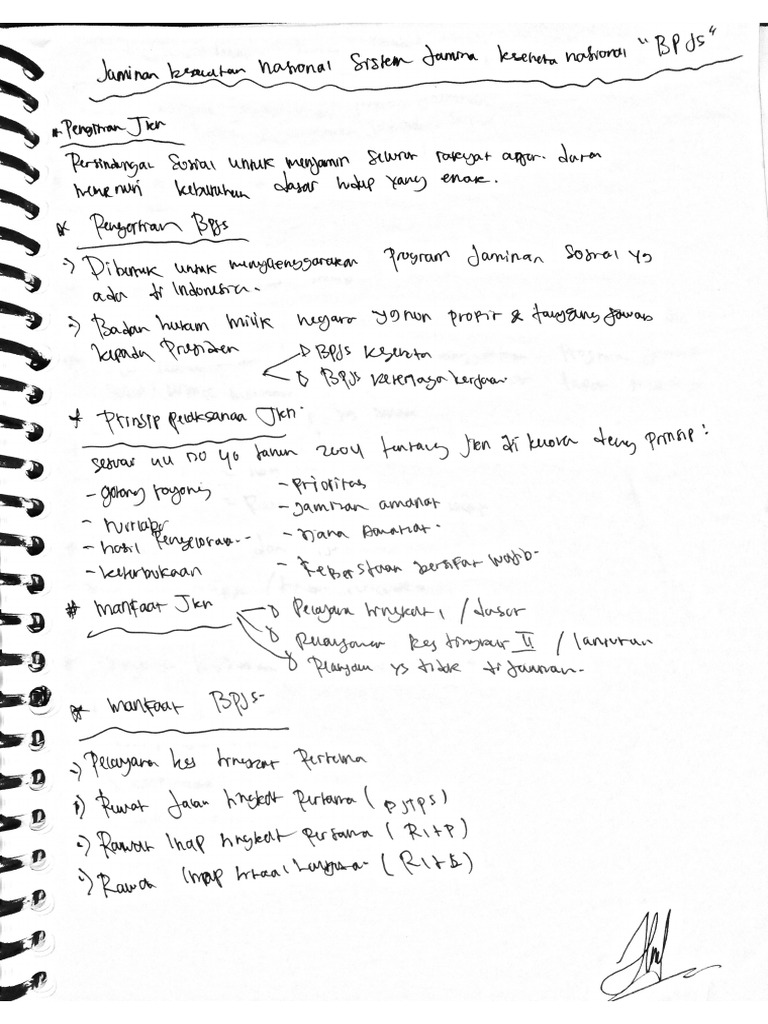 Jaminan kesehatan nasional Sistem Jamina keseheta nasional "BPJS"
* Pengitran Jkn
Perlindungan Sosial untuk menjamin seluruh rakyat agar dalam
memenuhi kebutuhan dasar hidup yang enak.
* Pengertian Bpjs
:) Dibentuk untuk menyelenggarakan program Jaminan Sosial yg
ada di Indonesia.
:) Badan hukum milik negara yg non profit & tanggung jawab
kepada Presiden
BPJS Keseheta
BPJS ketenaga kerjaan.
* Prinsip pelaksanaa Jkn.
sesuai UU no 40 tahun 2004 tentang Jkn di dengan Prinsip :
- gotong royong
- nirlaba
- hasil
- keterbukaan
- prioritas
- Jaminan amanat
- Dana Amanat.
- bersifat wajib.
# Manfaat Jkn
Pelayana tingkat 1 / dasar
Pelayanan kes tingkat II / lanjutan
Pelayan yg tidak di Jaminan.
* Manfaat BPJS-
:) Pelayana kes tingkat Pertama
:) Rawat Jalan tingkat Pertama (
:) Rawat Inap tingkat Pertama (RITP)
:) Rawat Inap